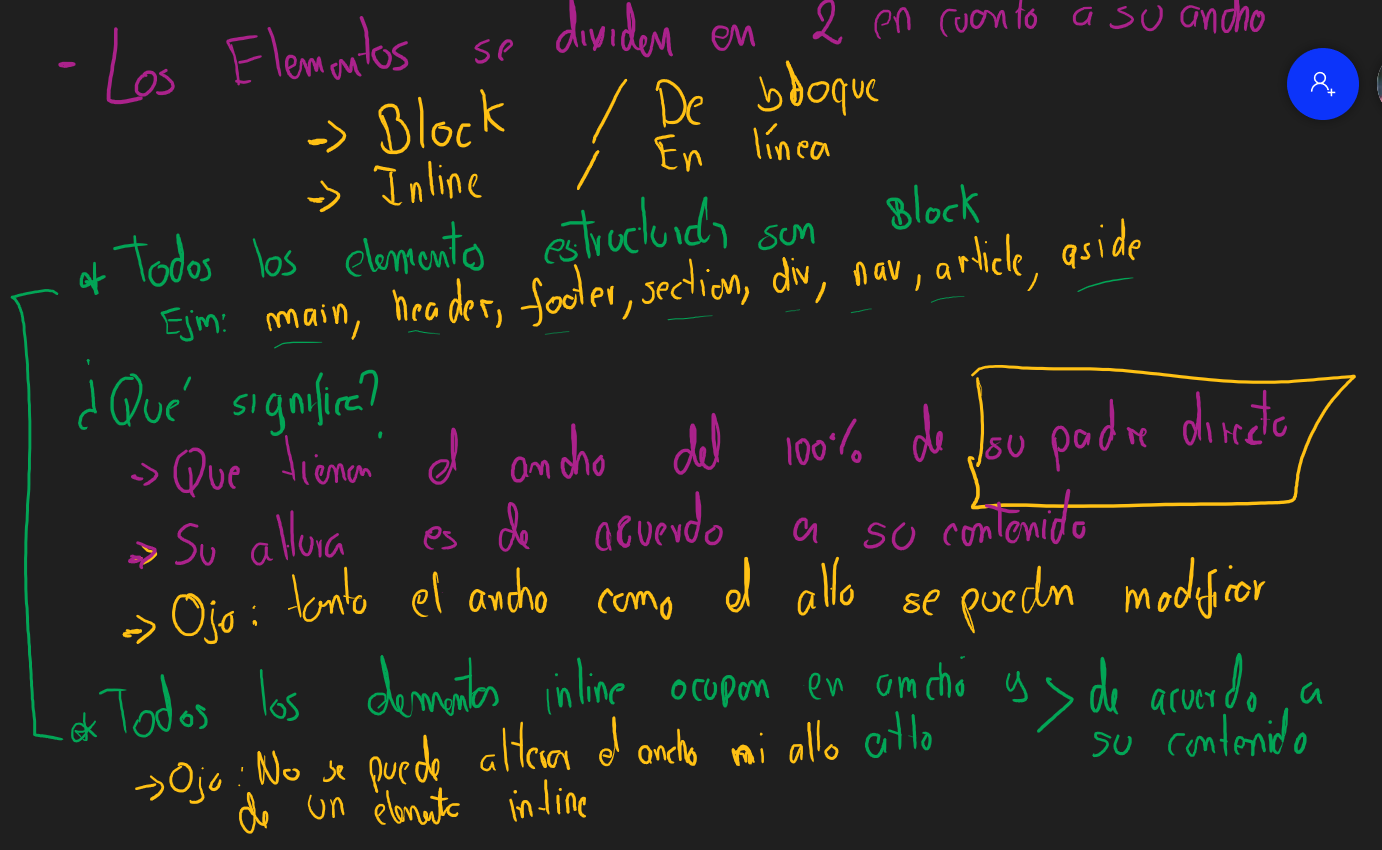 - Los Elementos se dividen en 2 en cuanto a su ancho
-> Block / De bloque
-> Inline / En línea
* Todos los elemento estructurals son Block
Ejm: main, header, footer, section, div, nav, article, aside
¿Qué significa?
-> Que tienen el ancho del 100% de su padre directo
-> Su altura es de acuerdo a su contenido
-> Ojo: tanto el ancho como el alto se pueden modificar
* Todos los elementos inline ocupan en ancho y alto > de acuerdo a su contenido
-> Ojo: No se puede alterar el ancho ni alto
de un elemento in-line